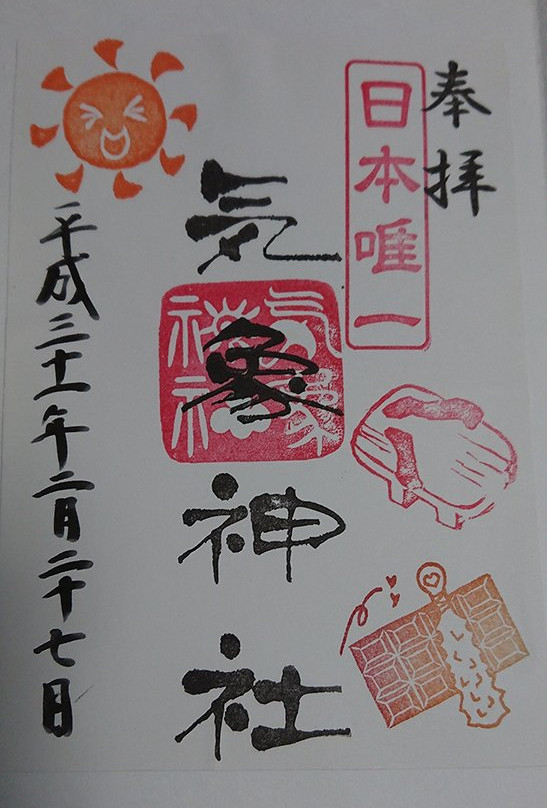 奉拝
日本唯一
気象神社
気象神社
平成三十一年二月二十七日